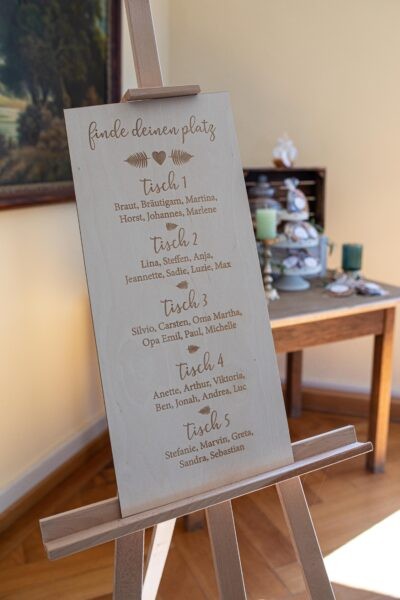 finde deinen platz
Tisch 1
Braut, Bräutigam, Martina,
Horst, Johannes, Marlene
Tisch 2
Lina, Steffen, Anja,
Jeannette, Sadie, Luzie, Max
Tisch 3
Silvio, Carsten, Oma Martha,
Opa Emil, Paul, Michelle
Tisch 4
Anette, Arthur, Viktoria,
Ben, Jonah, Andrea, Luc
Tisch 5
Stefanie, Marvin, Greta,
Sandra, Sebastian